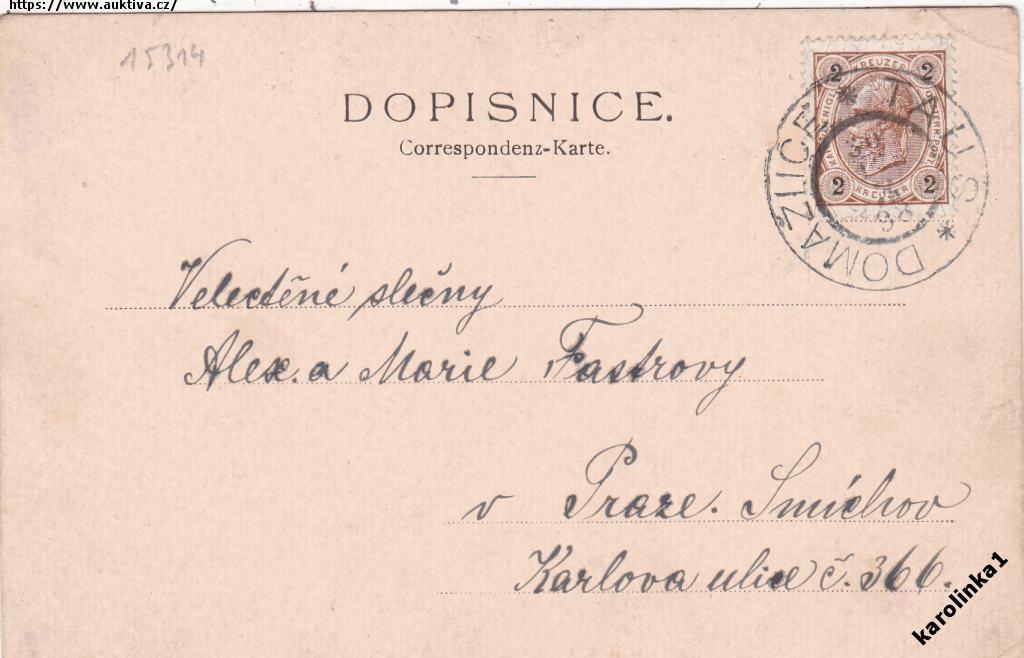 https://www.auktiva.cz/
15314
DOPISNICE.
Correspondenz-Karte.
2 KREUZER 2
2 KREUZER 2
TAUS * DOMAŽLICE *
98
Velectěné slečny
Alex. a Marie Fastrovy
v Praze. Smíchov
Karlova ulice č. 366.
karolinka1